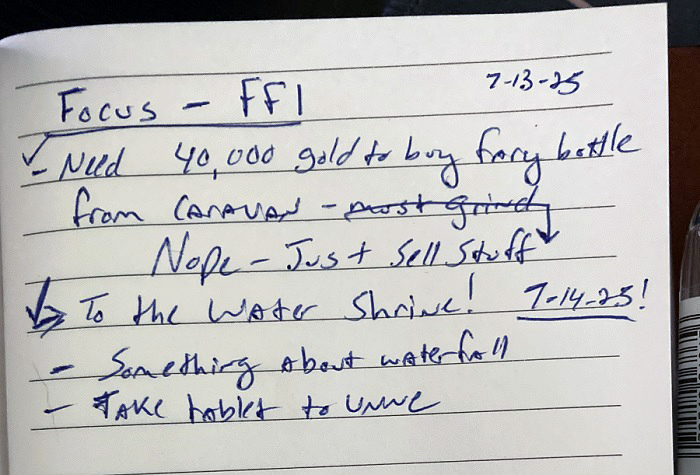 Focus - FF1 7-13-25
✓ - Need 40,000 gold to buy fairy bottle
from CARAVAN - must grind
Nope - Just Sell Stuff
To the Water Shrine! 7-14-25!
- Something about waterfall
- TAKE tablet to UNNE